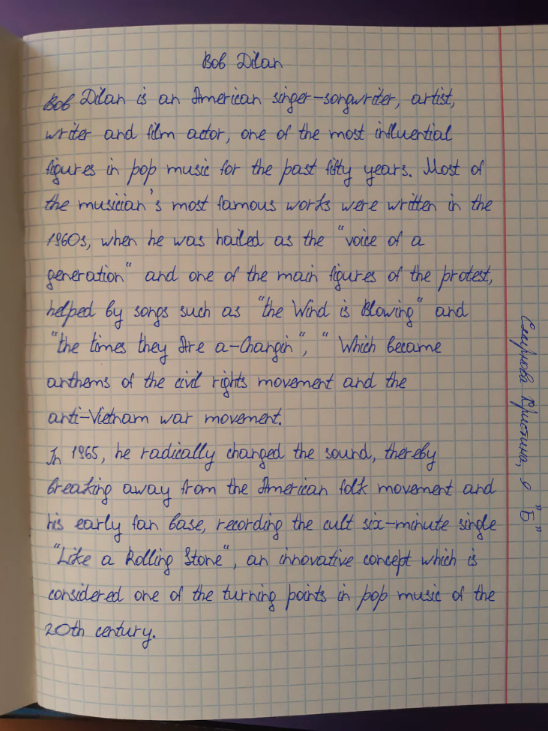 Bob Dilan
Bob Dilan is an American singer-songwriter, artist,
writer and film actor, one of the most influential
figures in pop music for the past fifty years. Most of
the musician's most famous works were written in the
1960s, when he was hailed as the "voice of a
generation" and one of the main figures of the protest,
helped by songs such as "the Wind is Blowing" and
"the times they Are a-Changin", " Which became
anthems of the civil rights movement and the
anti-Vietnam war movement.
In 1965, he radically changed the sound, thereby
breaking away from the American folk movement and
his early fan base, recording the cult six-minute single
"Like a Rolling Stone", an innovative concept which is
considered one of the turning points in pop music of the
20th century.
Смирнова Кристина, 9 "Б"